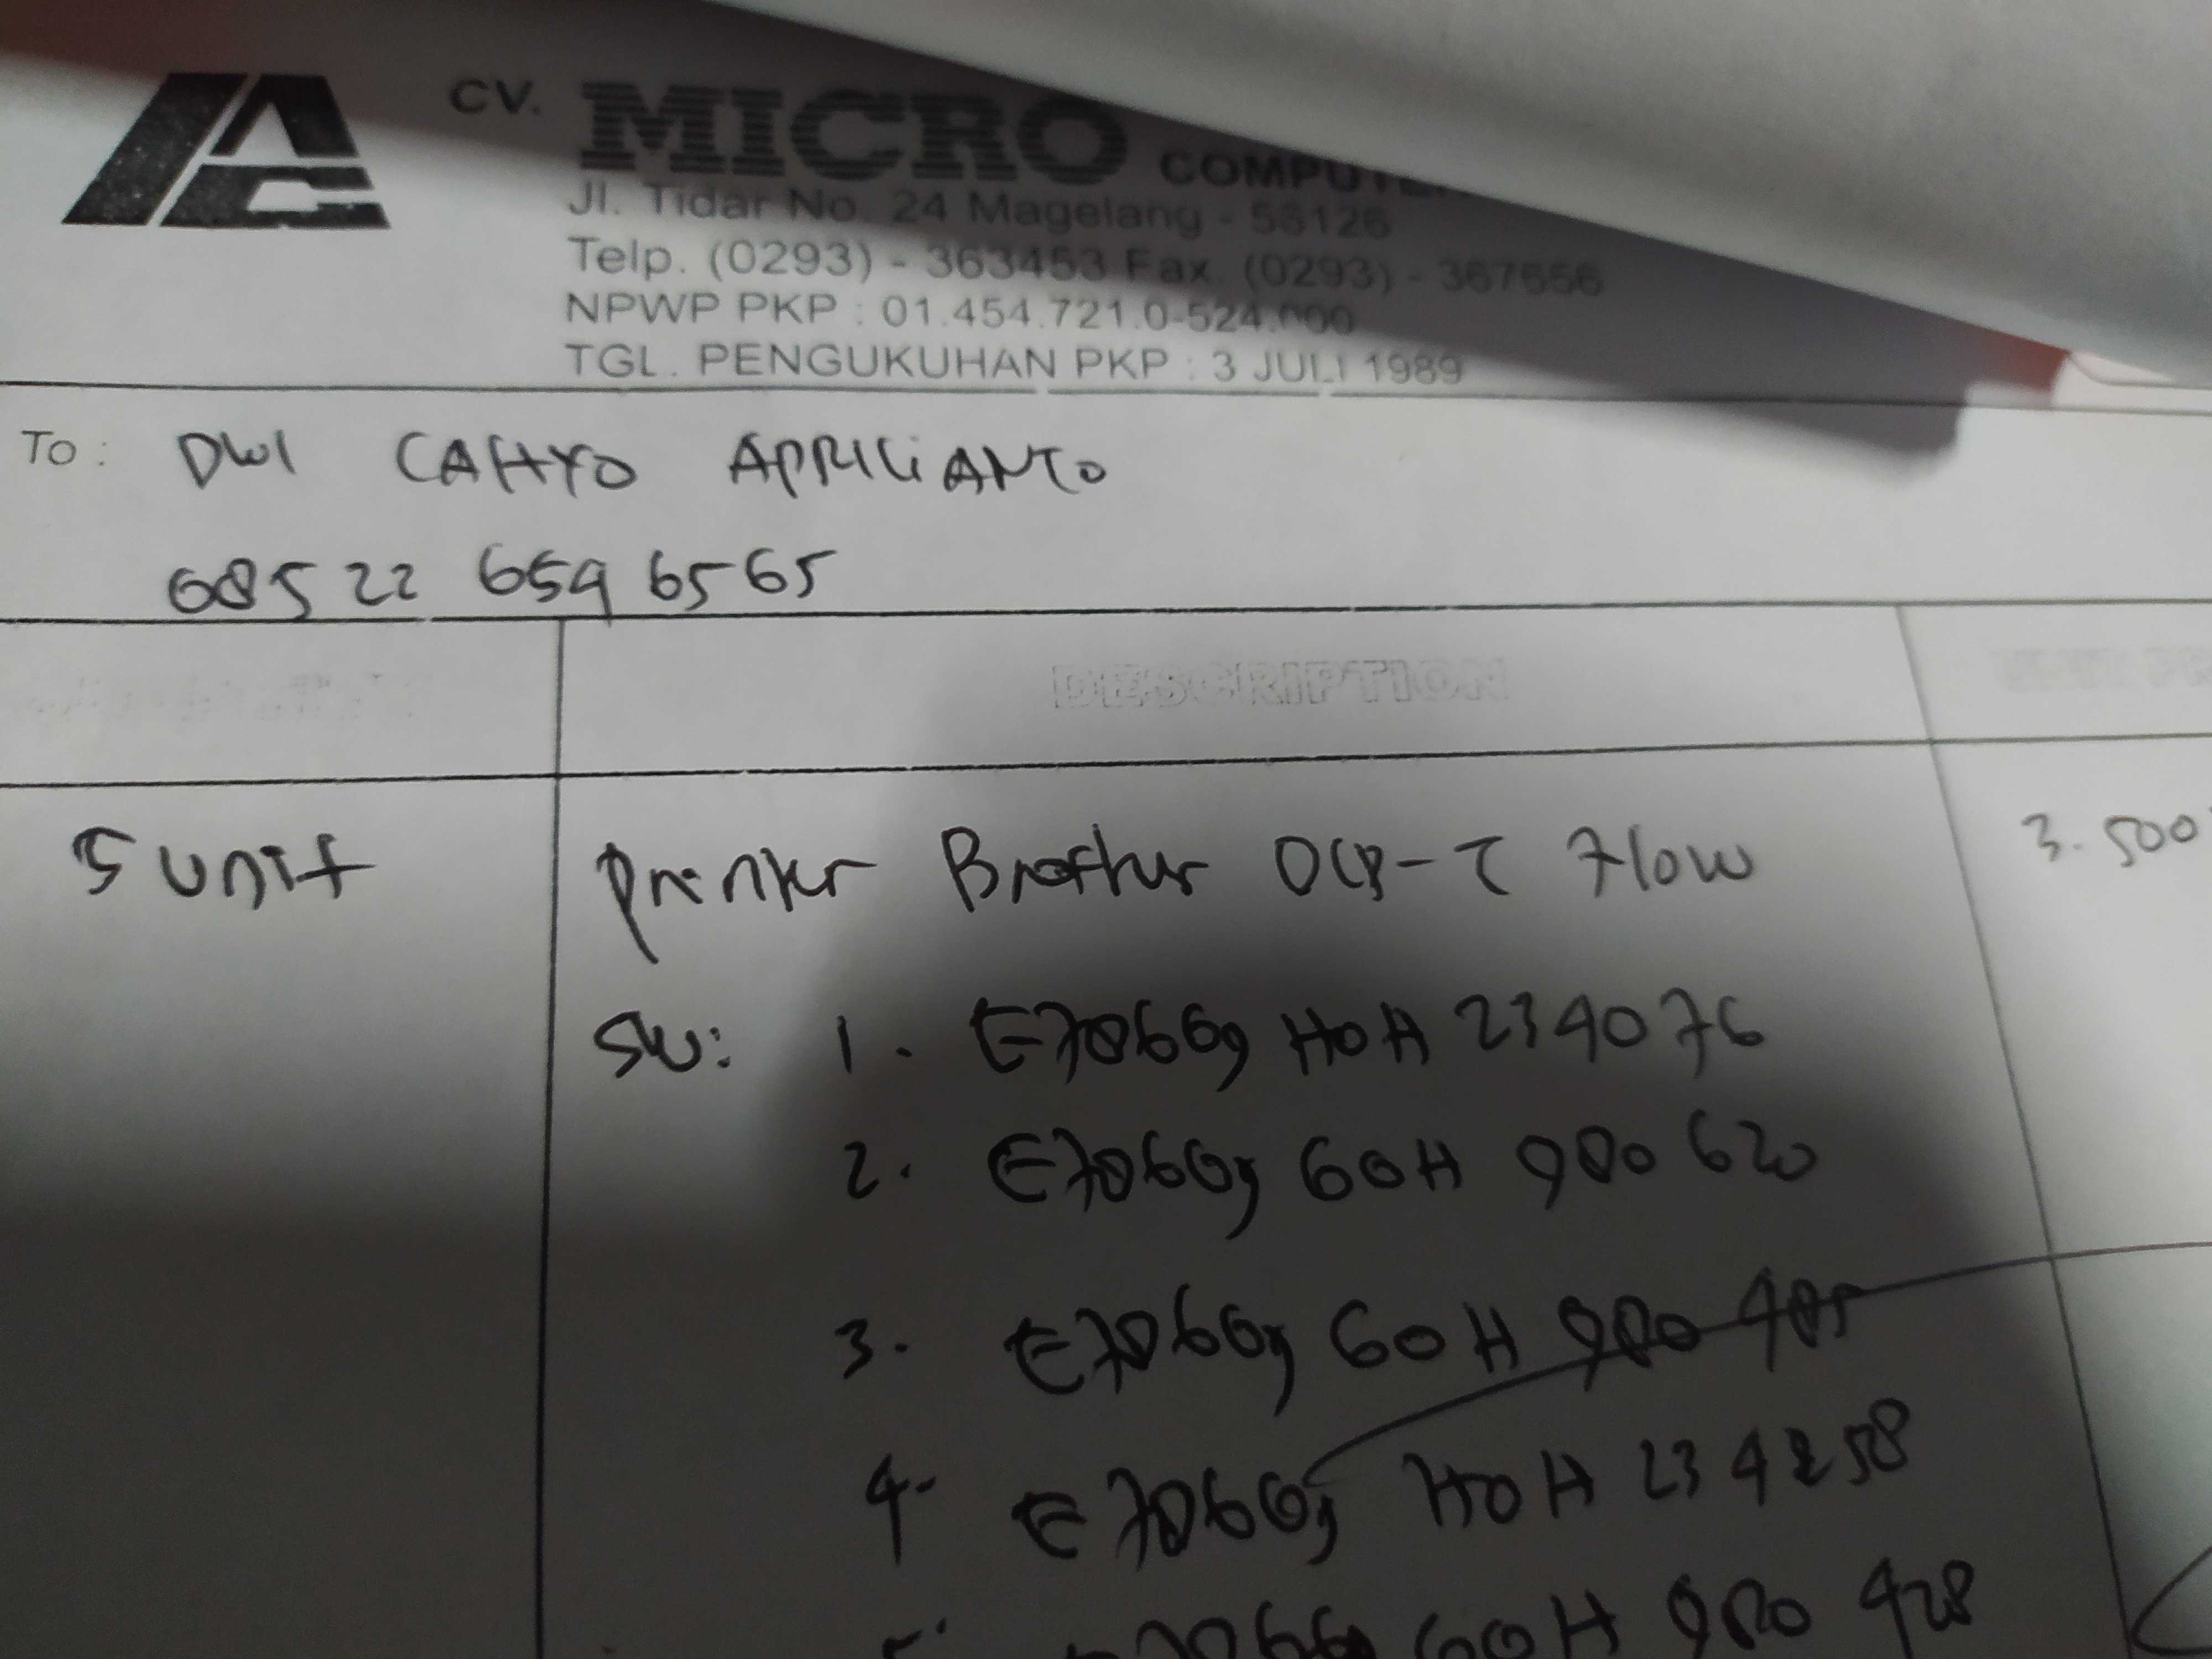 CV. MICRO COMPUTER
Jl. Tidar No. 24 Magelang - 56126
Telp. (0293) - 363453 Fax. (0293) - 367656
NPWP PKP : 01.454.721.0-524.000
TGL. PENGUKUHAN PKP : 3 JULI 1989
To : DWI CAHYO APRILIANTO
08522 659 6565
DESCRIPTION
5 unit Printer Brother DCP-T Flow 3.500
SN: 1. E78066g H0H 234076
2. E78066g 60H 980 620
3. E78066g 60H 980 485
4. E78066g H0H 234258
60H 980 428